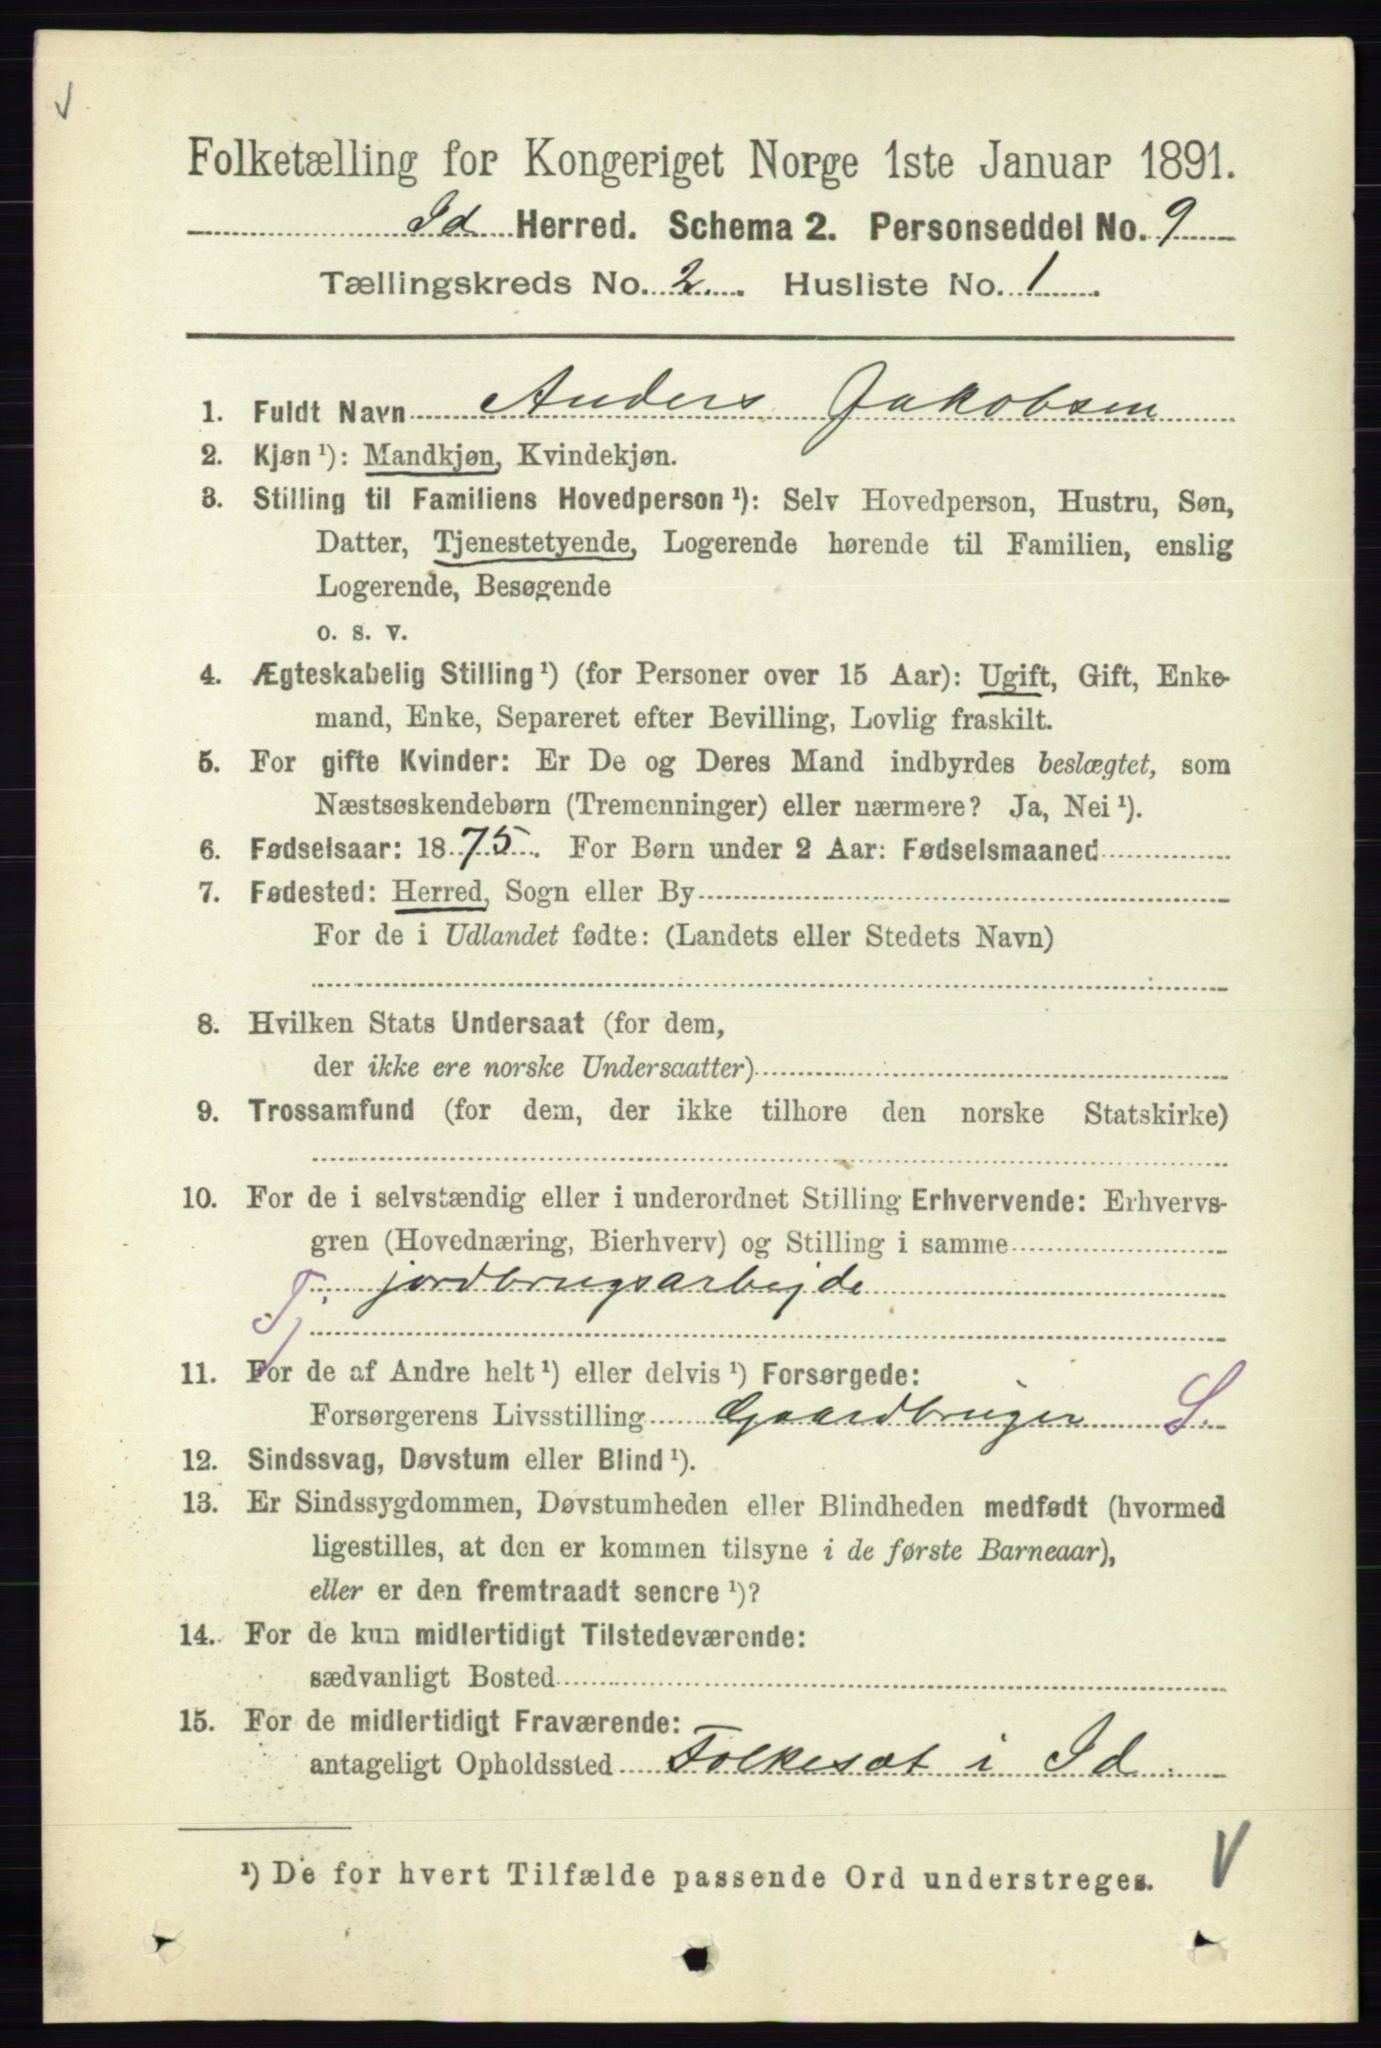 Folketælling for Kongeriget Norge 1ste Januar 1891.
Id Herred. Schema 2. Personseddel No. 9
Tællingskreds No. 2. Husliste No. 1
1. Fuldt Navn Anders Jakobsen
2. Kjøn ¹): Mandkjøn, Kvindekjøn.
3. Stilling til Familiens Hovedperson ¹): Selv Hovedperson, Hustru, Søn,
Datter, Tjenestetyende, Logerende hørende til Familien, enslig
Logerende, Besøgende
o. s. v.
4. Ægteskabelig Stilling ¹) (for Personer over 15 Aar): Ugift, Gift, Enke-
mand, Enke, Separeret efter Bevilling, Lovlig fraskilt.
5. For gifte Kvinder: Er De og Deres Mand indbyrdes beslægtet, som
Næstsøskendebørn (Tremenninger) eller nærmere? Ja, Nei ¹).
6. Fødselsaar: 1875. For Børn under 2 Aar: Fødselsmaaned
7. Fødested: Herred, Sogn eller By
For de i Udlandet fødte: (Landets eller Stedets Navn)
8. Hvilken Stats Undersaat (for dem,
der ikke ere norske Undersaatter)
9. Trossamfund (for dem, der ikke tilhøre den norske Statskirke)
10. For de i selvstændig eller i underordnet Stilling Erhvervende: Erhvervs-
gren (Hovednæring, Bierhverv) og Stilling i samme
Tj. jordbrugsarbejde
11. For de af Andre helt ¹) eller delvis ¹) Forsørgede:
Forsørgerens Livsstilling Gaardbruger S.
12. Sindssvag, Døvstum eller Blind ¹).
13. Er Sindssygdommen, Døvstumheden eller Blindheden medfødt (hvormed
ligestilles, at den er kommen tilsyne i de første Barneaar),
eller er den fremtraadt senere ¹)?
14. For de kun midlertidigt Tilstedeværende:
sædvanligt Bosted
15. For de midlertidigt Fraværende:
antageligt Opholdssted Folkesæt i Id
¹) De for hvert Tilfælde passende Ord understreges. V